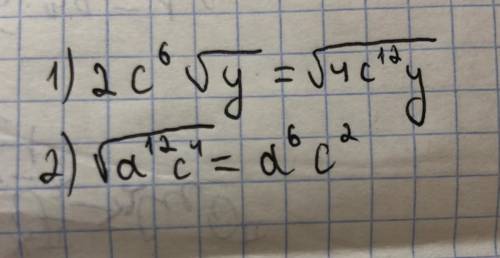 1) 2c⁶√y = √4c¹²y
2) √a¹²c⁴ = a⁶c²